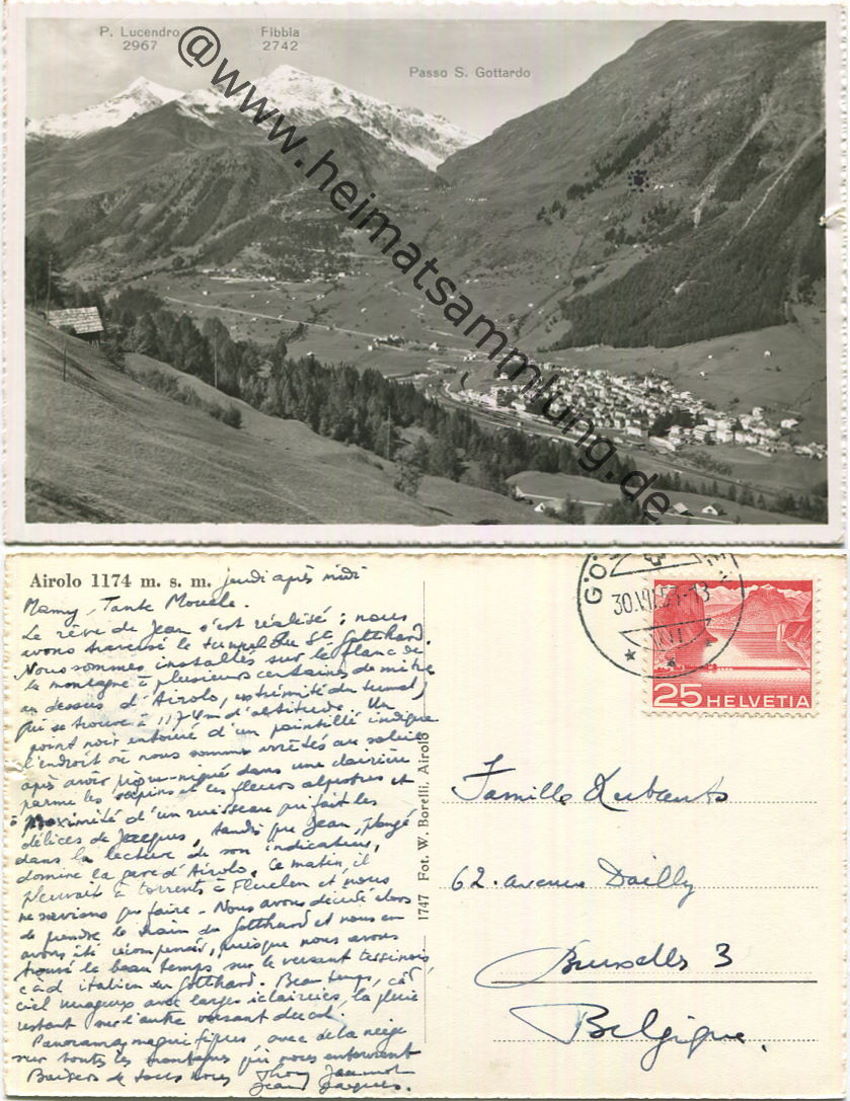 P. Lucendro
2967
Fibbia
2742
Passo S. Gottardo
@www.heimatsammlung.de
Airolo 1174 m. s. m. jeudi après midi
Mamy, Tante
Le rêve de Jean s'est réalisé : nous
avons traversé le tunnel du St Gotthard.
Nous sommes installés sur le flanc de
la montagne à plusieurs centaines de mètres
au dessus d'Airolo, extrémité du tunnel,
qui se trouve à 1174m d'altitude. Un
point noir entouré d'un pointillé indique
l'endroit où nous sommes au soleil
après avoir pique-niqué dans une clairière
parmi les sapins et les fleurs alpestres et
à proximité d'un ruisseau qui fait les
délices de Jacques, tandis que Jean, plongé
dans la lecture de son indicateur,
domine la gare d'Airolo. Ce matin, il
pleuvait à torrents à Fluelen et nous
ne savions que faire - Nous avons décidé alors
de prendre le train du Gotthard et nous en
avons été récompensés, puisque nous avons
trouvé le beau temps sur le versant tessinois,
càd italien du Gotthard. Beau temps, càd
ciel nuageux avec larges éclaircies, la pluie
restant sur l'autre versant du col.
Panoramas magnifiques, avec de la neige
sur toutes les montagnes qui nous entourent
Baisers de tous nous
Jean Jacques.
1747 Fot. W. Borelli, Airolo
GÖ
30.VII.53-13
25 HELVETIA
Famille
62. avenue Dailly
Bruxelles 3
Belgique.